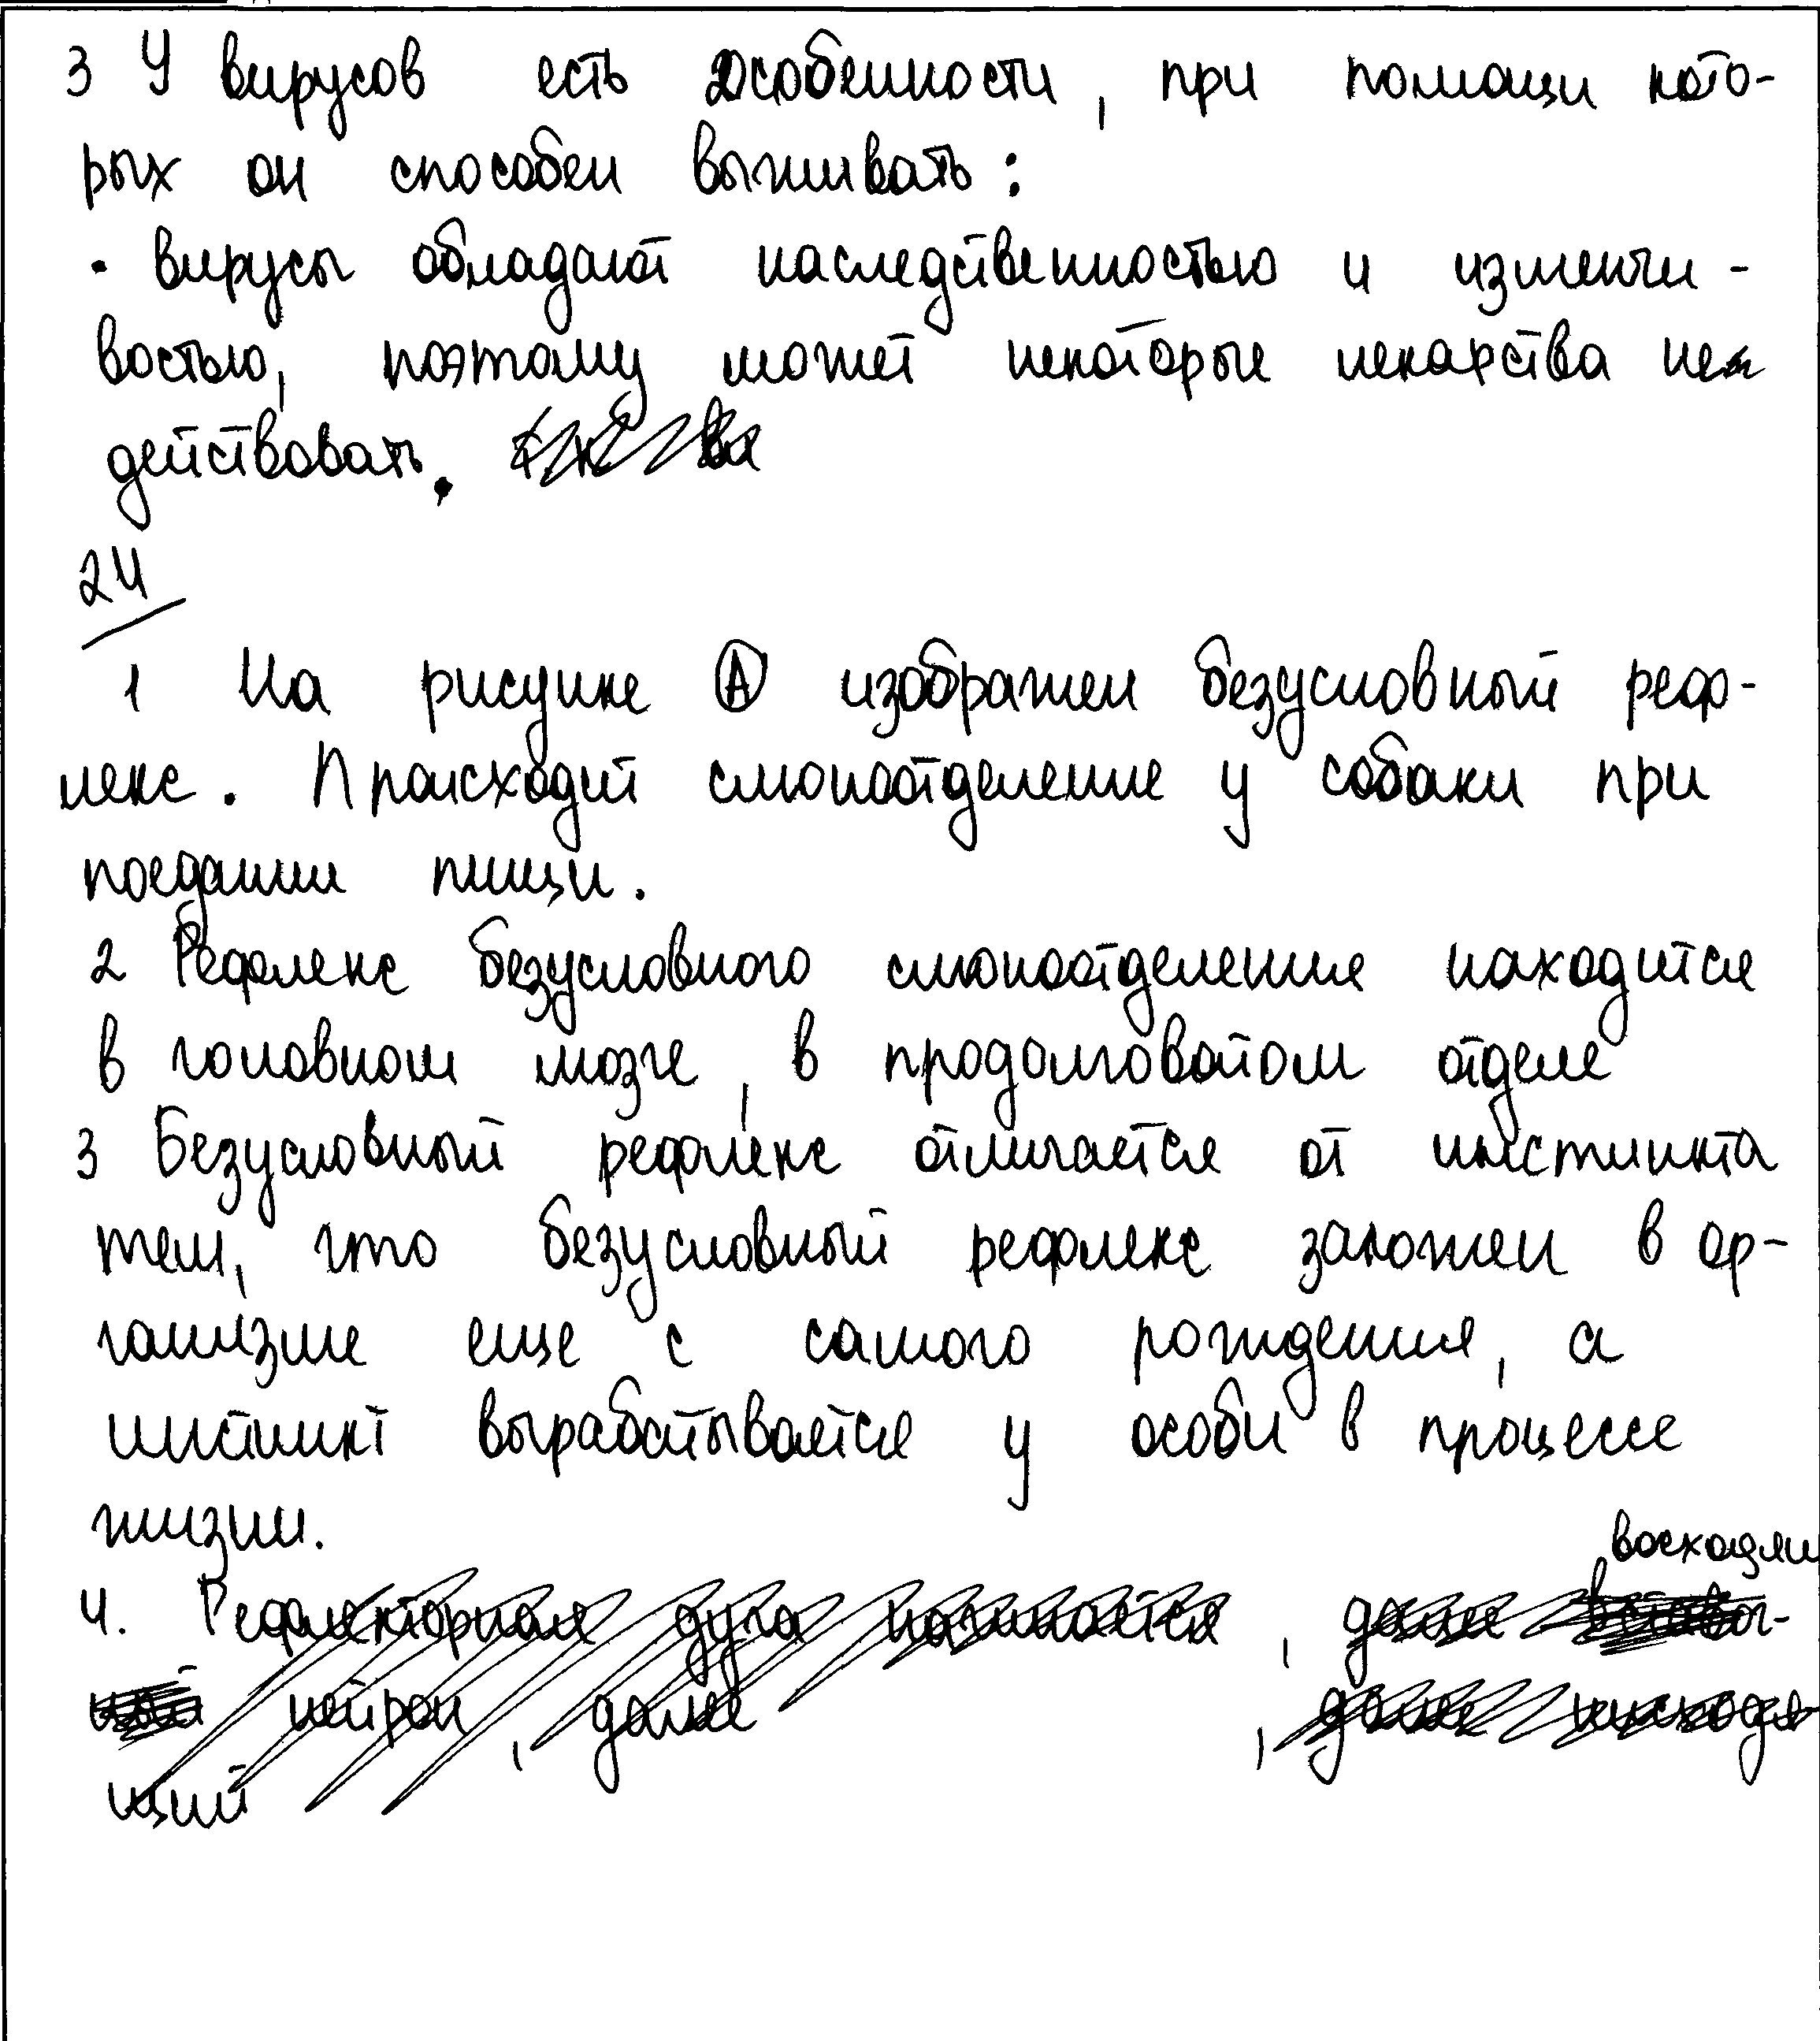 3 У вирусов есть особенности, при помощи кото-
рых он способен выживать:
• вирусы обладают наследственностью и изменчи-
востью, поэтому может некоторые лекарства не
действовать.
24
1 На рисунке А изображен безусловный реф-
лекс. Происходит слюноотделение у собаки при
поедании пищи.
2 Рефлекс безусловного слюноотделения находится
в головном мозге, в продолговатом отделе
3 Безусловный рефлекс отличается от инстинкта
тем, что безусловный рефлекс заложен в ор-
ганизме еще с самого рождения, а
инстинкт вырабатывается у особи в процессе
жизни.
восходящи
4. Рефлекторная дуга начинается , далее
нейрон, далее , далее нисходя
щий